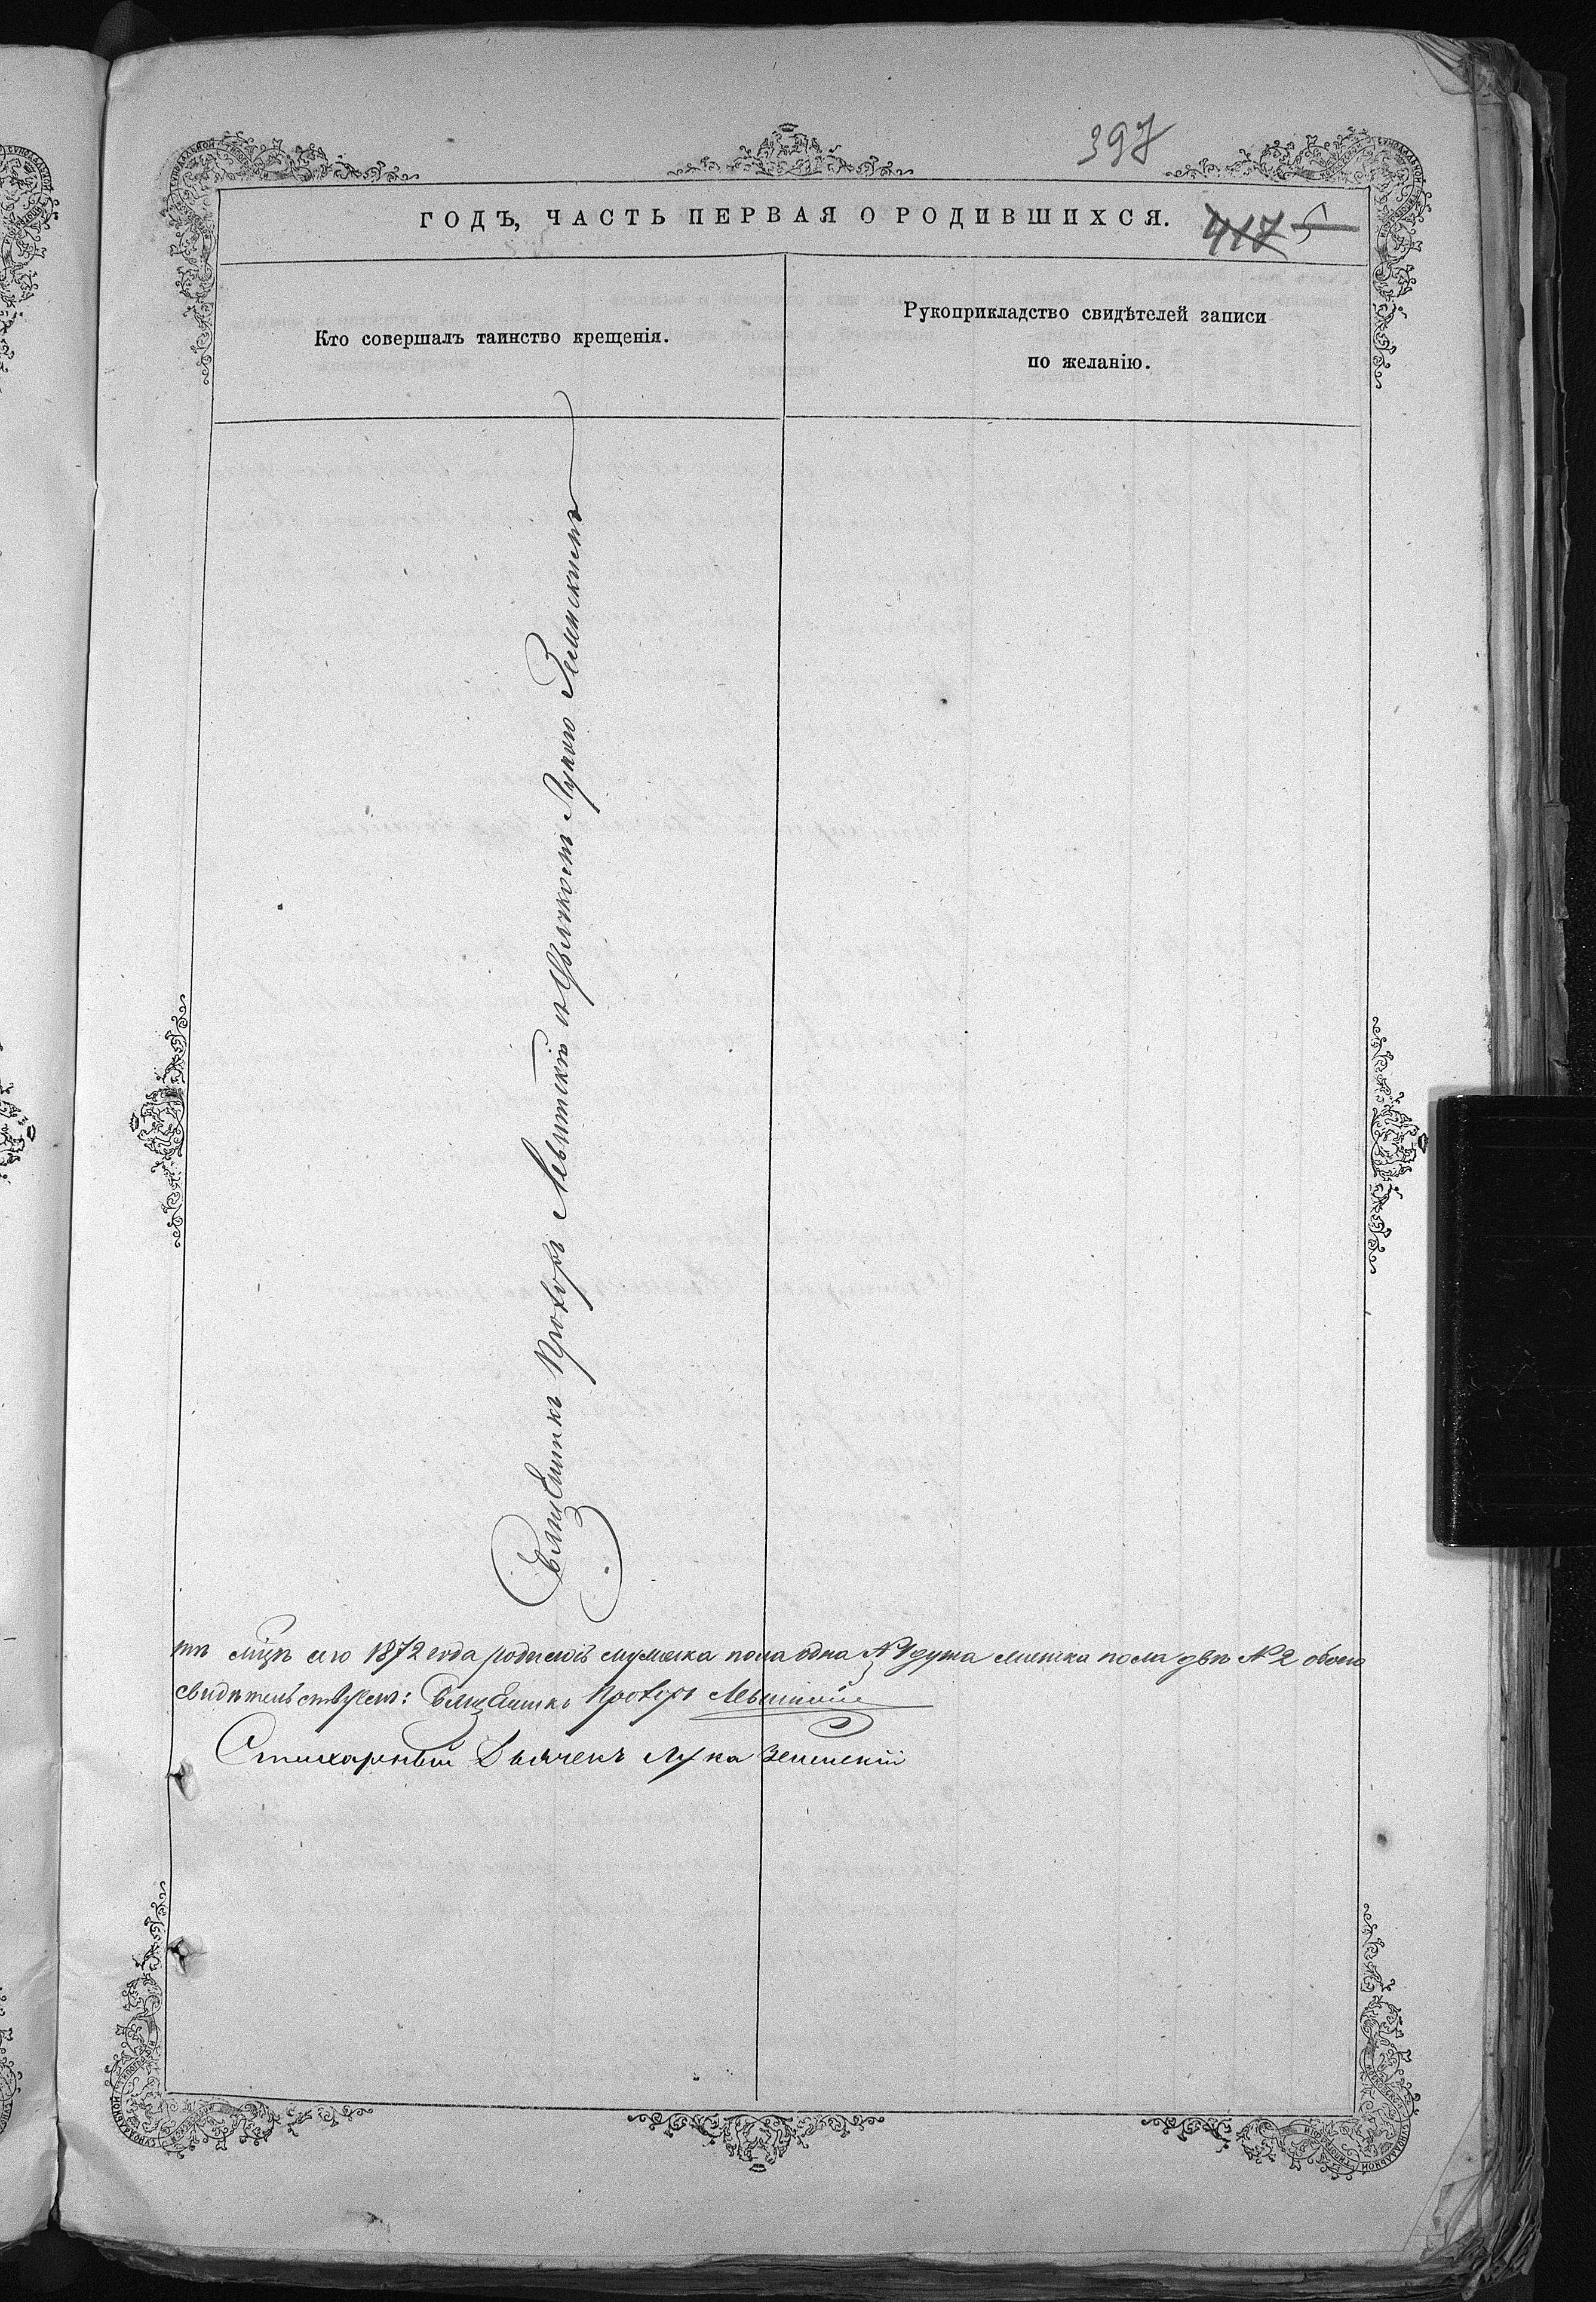 397
ГОДЪ, ЧАСТЬ ПЕРВАЯ О РОДИВШИХСЯ.
417 5
Кто совершалъ таинство крещенія.
Рукоприкладство свидѣтелей записи
по желанію.
Священникъ Прохоръ Левитскій съ Дьячкомъ Лукою Зелинскимъ
мцѣ сего 1872 года родилось мужеска пола одна №1 душа женска пола двѣ №2 обоего
свидѣтельствуемъ: Священникъ Прохоръ Левитскій
Стихарный Дьячекъ Лука Зелинскій